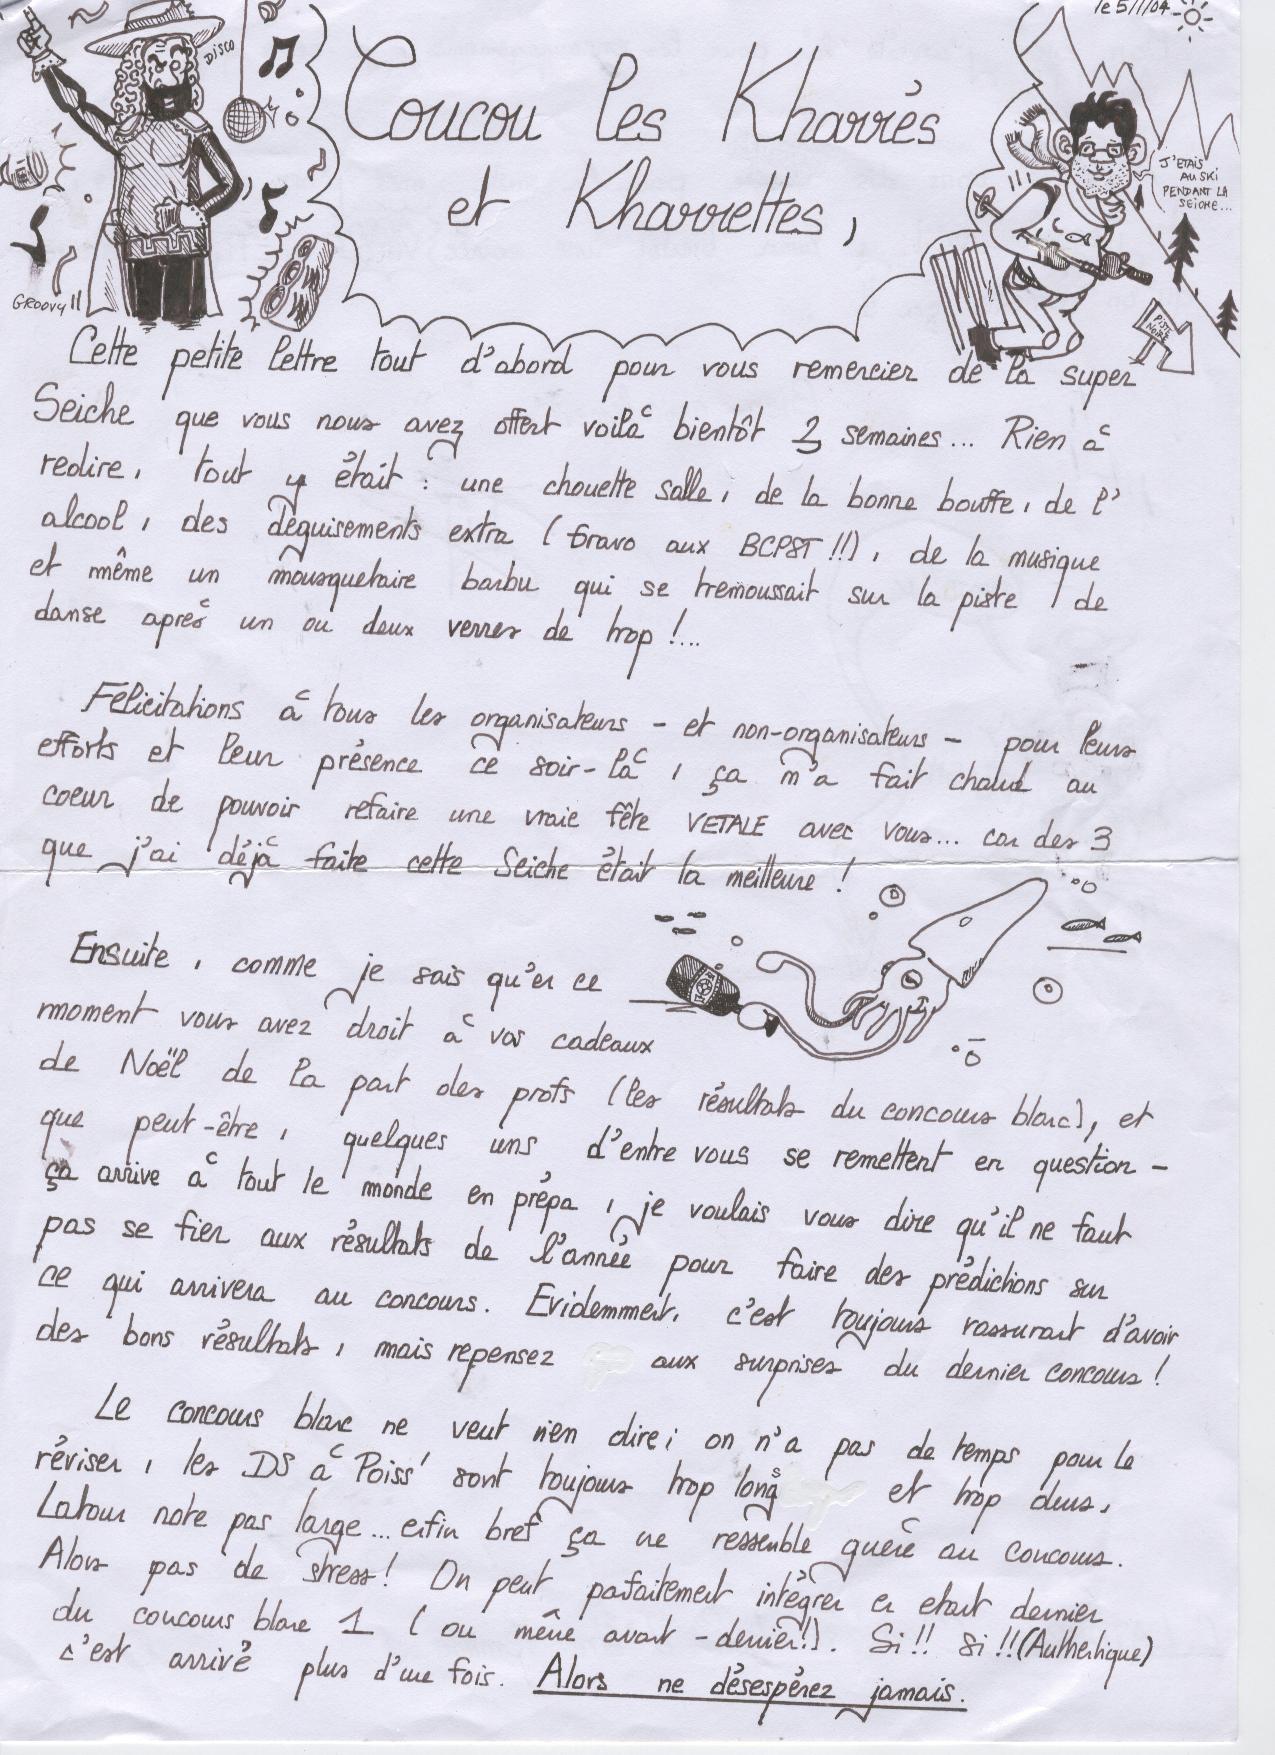 le 5/1/04
DISCO
Coucou les Kharrés
et Kharrettes,
J'ETAIS
AU SKI
PENDANT LA
SEICHE...
GROOVY !!
PISTE
NOIRE
Cette petite lettre tout d'abord pour vous remercier de la super
Seiche que vous nous avez offert voilà bientôt 3 semaines... Rien à
redire, tout y était : une chouette salle, de la bonne bouffe, de l'
alcool, des déguisements extra (bravo aux BCPST !!), de la musique
et même un mousquetaire barbu qui se tremoussait sur la piste de
danse après un ou deux verres de trop !...
Félicitations à tous les organisateurs - et non-organisateurs - pour leurs
efforts et leur présence ce soir-là, ça m'a fait chaud au
coeur de pouvoir refaire une vraie fête VETALE avec vous... car des 3
que j'ai déjà faite cette Seiche était la meilleure !
Ensuite, comme je sais qu'en ce
moment vous avez droit à vos cadeaux
de Noël de la part des profs (les résultats du concours blanc), et
que peut-être, quelques uns d'entre vous se remettent en question -
ça arrive à tout le monde en prépa, je voulais vous dire qu'il ne faut
pas se fier aux résultats de l'année pour faire des prédictions sur
ce qui arrivera au concours. Evidemment, c'est toujours rassurant d'avoir
des bons résultats, mais repensez aux surprises du dernier concours !
Le concours blanc ne veut rien dire ; on n'a pas de temps pour le
réviser, les DS à Poiss' sont toujours trop longs et trop durs,
Latour note pas large... enfin bref ça ne ressemble guère au concours.
Alors pas de stress ! On peut parfaitement intégrer en etant dernier
du concours blanc 1 (ou même avant-dernier!). Si !! Si !! (Authentique)
c'est arrivé plus d'une fois. Alors ne désespérez jamais.